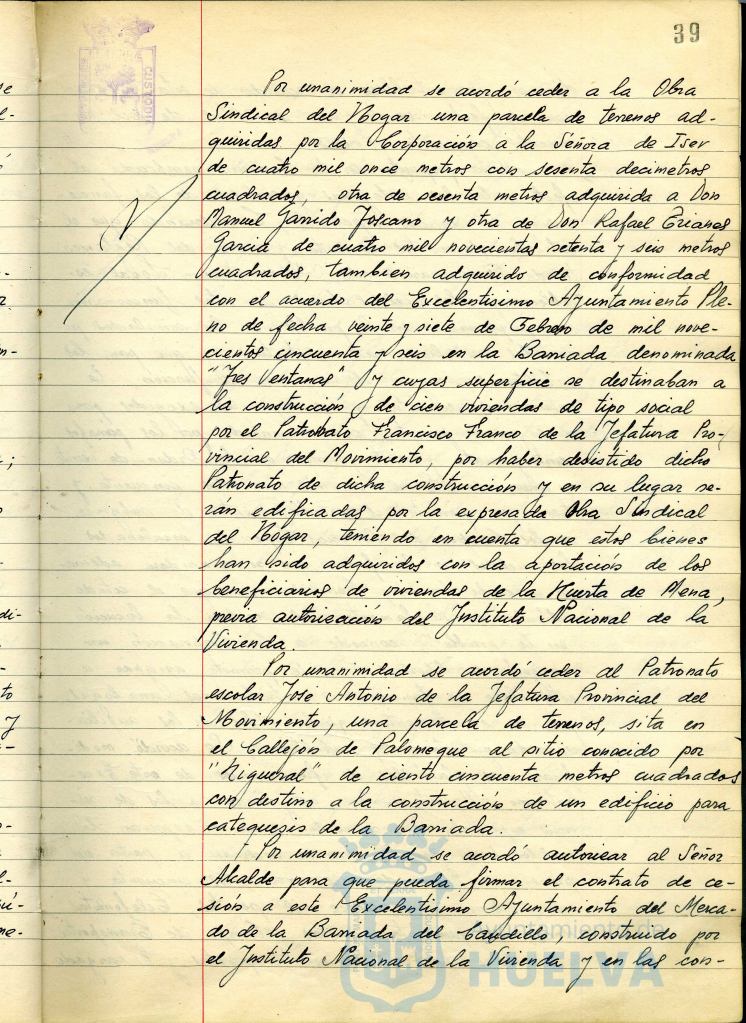 39
Por unanimidad se acordó ceder a la Obra
Sindical del Hogar una parcela de terrenos ad-
quiridas por la Corporación a la Señora de Isern
de cuatro mil once metros con sesenta decimetros
cuadrados, otra de sesenta metros adquirida a Don
Manuel Garrido Toscano y otra de Don Rafael
Garcia de cuatro mil novecientas setenta y seis metros
cuadrados, tambien adquirido de conformidad
con el acuerdo del Excelentisimo Ayuntamiento Ple-
no de fecha veinte y siete de Febrero de mil nove-
cientos cincuenta y seis en la Barriada denominada
"Tres Ventanas" y cuyas superficie se destinaban a
la construcción de cien viviendas de tipo social
por el Patronato Francisco Franco de la Jefatura Pro-
vincial del Movimiento, por haber desistido dicho
Patronato de dicha construcción y en su lugar se-
rán edificadas por la expresada Obra Sindical
del Hogar, teniendo en cuenta que estos bienes
han sido adquiridos con la aportación de los
beneficiarios de viviendas de la Huerta de Mena,
previa autorización del Instituto Nacional de la
Vivienda.
Por unanimidad se acordó ceder al Patronato
escolar José Antonio de la Jefatura Provincial del
Movimiento, una parcela de terrenos, sita en
el Callejón de Palomeque al sitio conocido por
"Higueral" de ciento cincuenta metros cuadrados
con destino a la construcción de un edificio para
catequesis de la Barriada.
Por unanimidad se acordó autorizar al Señor
Alcalde para que pueda firmar el contrato de ce-
sión a este Excelentisimo Ayuntamiento del Merca-
do de la Barriada del Caudillo, construido por
el Instituto Nacional de la Vivienda y en las con-
HUELVA